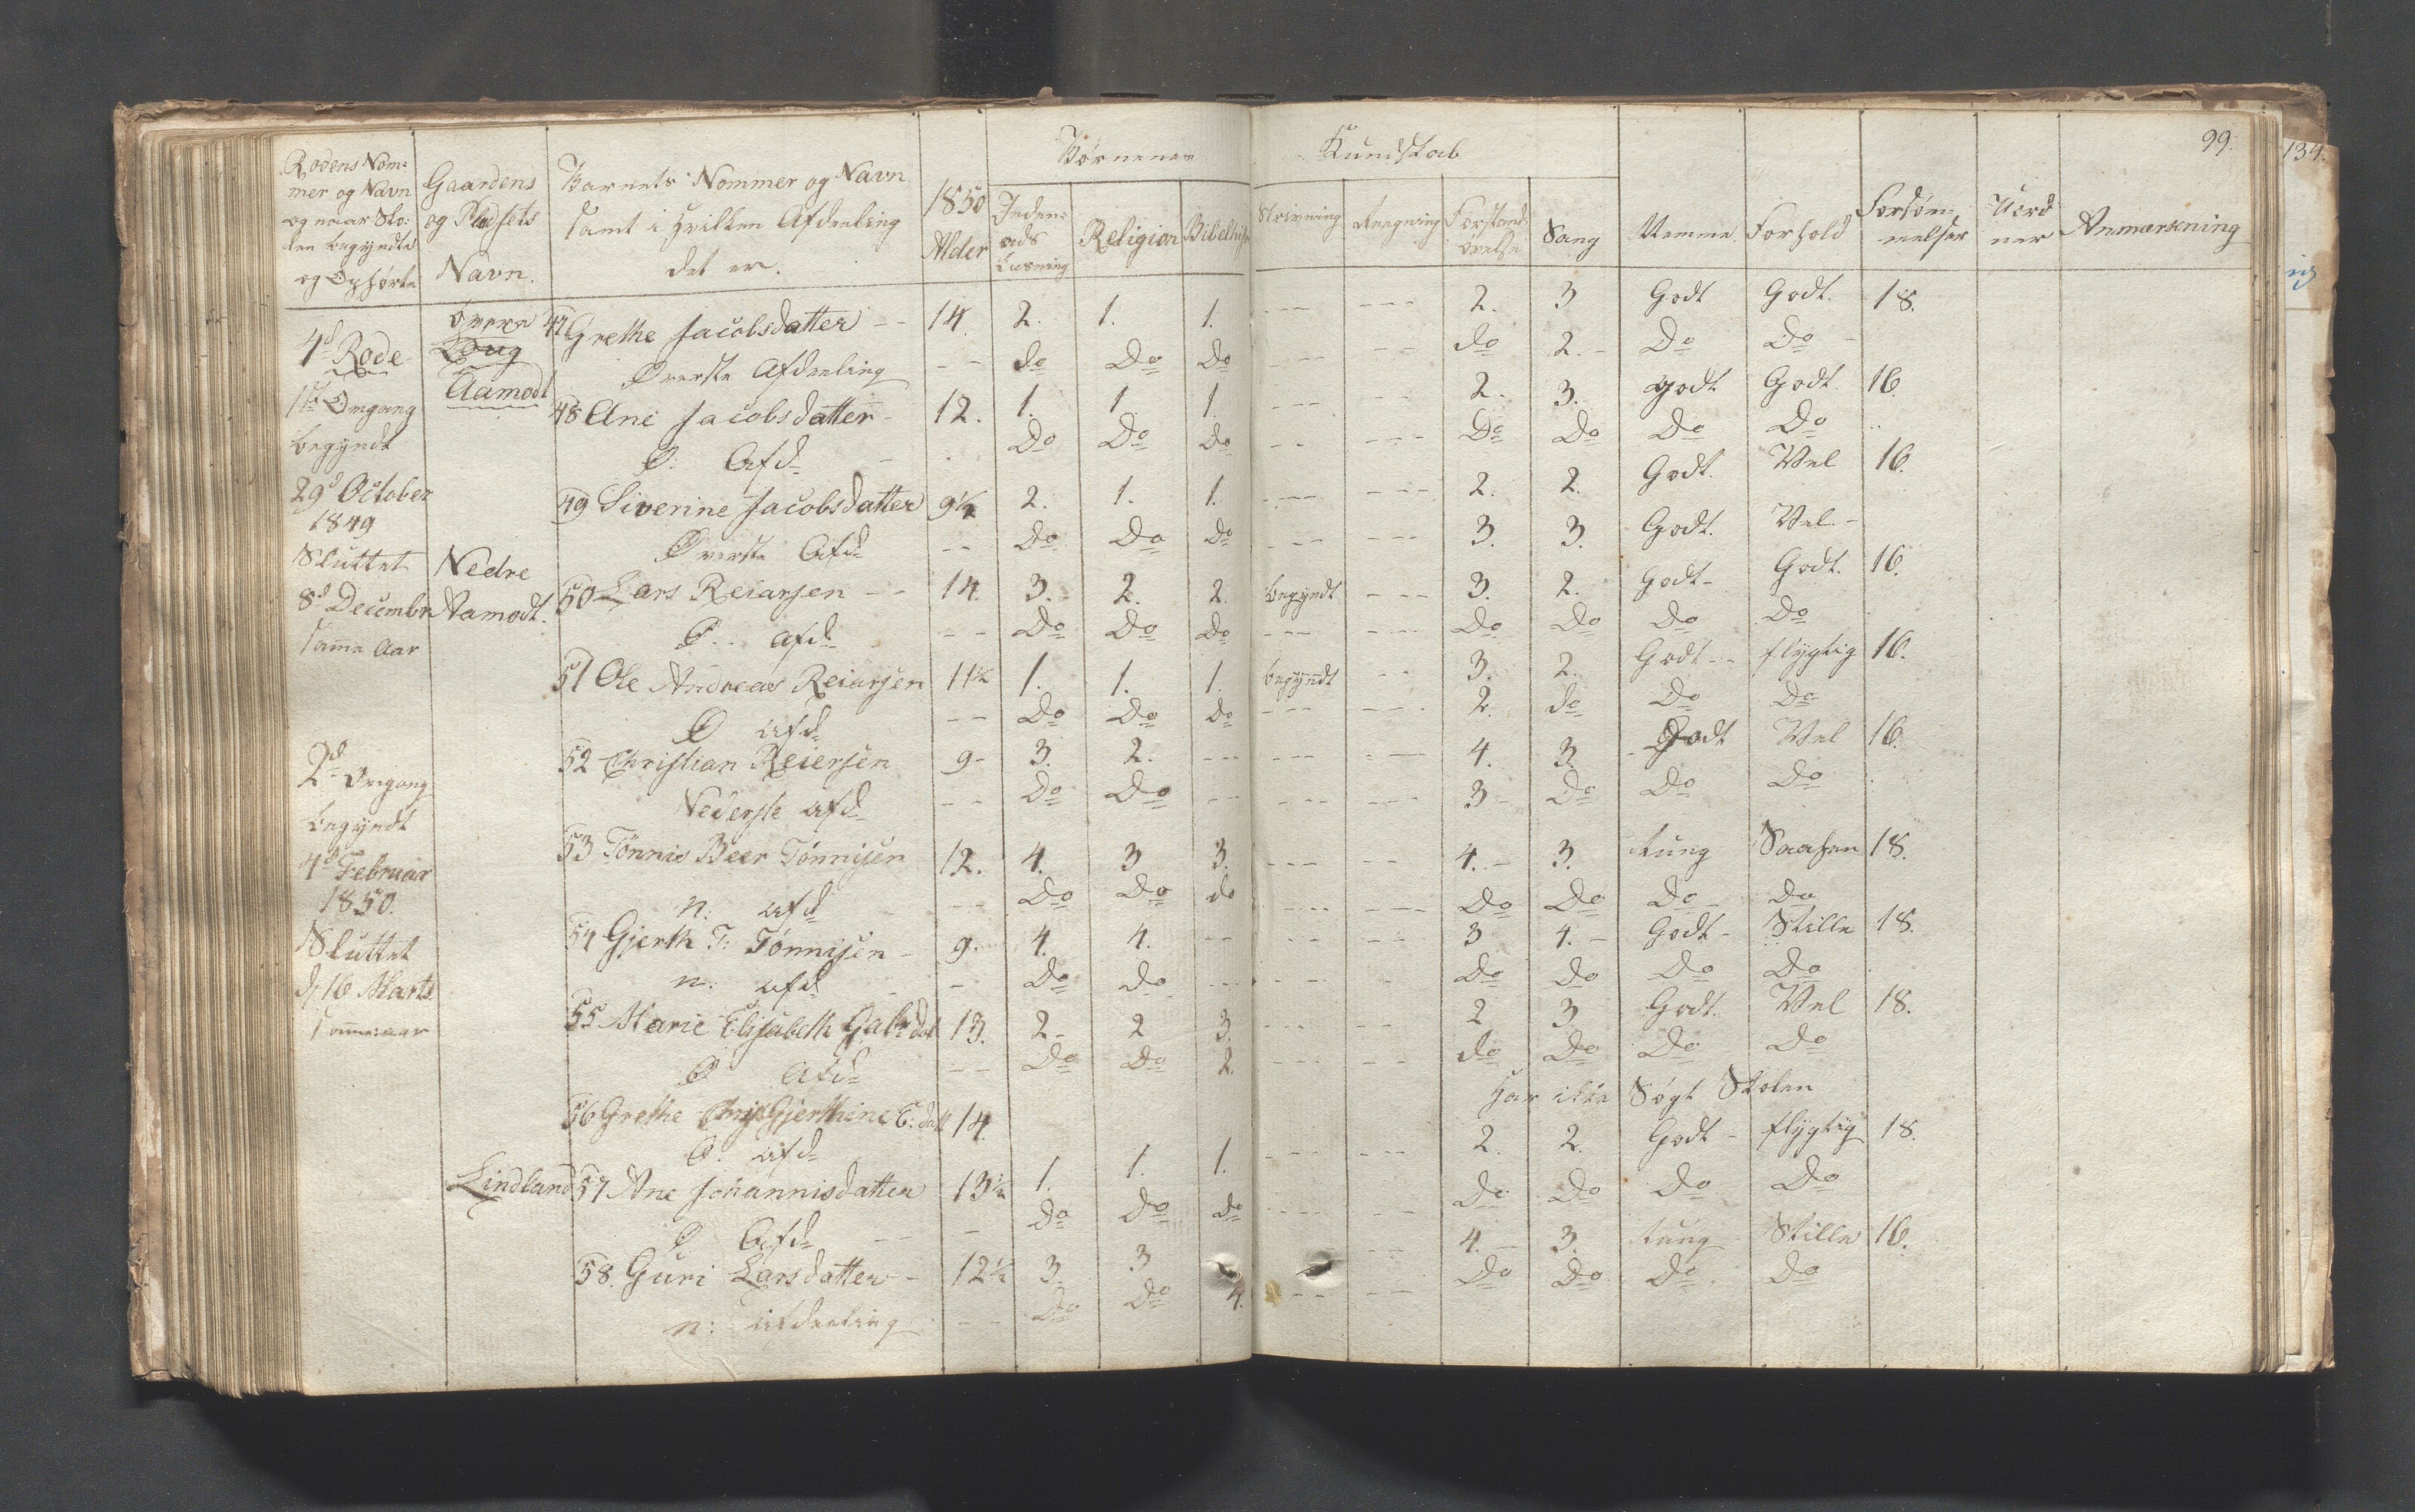 99.
134.
Rodens Nom- Gaardens Barnets Nommer og Navn 1850 Børnenes Kundskab
mer og Navn og Pladsets samt i hvilken Afdeeling Alder Inden- Religion Bibelhist Skrivning Regning Forstands Sang Nemme Forhold Forsøm- Uord Anmærkning
og naar Sko- Navn. det er. ads øvelse melser ner
len begyndte Læsning
og Ophørte
4d Rode Øvre 47 Grethe Jacobsdatter -- 14. 2. 1. 1. --- --- 2. 3 Godt Godt. 18.
Øverste Afdeeling -- do Do Do --- -- do 2.- Do Do -
1ste Omgang Aamodt 48 Ane Jacobsdatter - 12. 1. 1. 1. -- -- 2. 3. godt Godt. 16.
begyndt Ø: Afd - Do Do Do -- --- Do Do Do Do
29d October 49 Siverine Jacobsdatter 9½ 2. 1. 1. --- --- 2. 2. Godt. Vel 16.
1849 Øverste Afd -- Do Do Do --- --- 3. 3. Godt. Vel.-
Sluttet Nedre
8d Decembr Aamodt. 50 Lars Reiarsen -- 14. 3. 2. 2. begyndt --- 3. 2. Godt- Godt. 16.
samme Aar Ø. afd -- Do Do Do --- --- Do Do Do Do
51 Ole Andreas Reiarsen 11½ 1. 1. 1. begyndt -- 3. 2. Godt-- flygtig 16.
Ø afd -- Do Do do --- --- 2. do Do Do
2d Omgang 52 Christian Reiersen 9- 3. 2. --- --- -- 4. 3. Godt Vel 16.
begyndt Nederste afd -- Do Do -- --- --- 3- Do Do Do
4d Februar 53 Tønnis Beer Tønnisen 12. 4. 3 3. --- -- 4.- 3. tung Saahen 18.
1850. n: afd -- Do Do do --- --- Do Do Do do
Sluttet 54 Gjerth T: Tønnisen - 9. 4. 4. -- -- -- 3 4.- Godt- Stille 18.
d 16 Marts n: afd - Do do --- -- -- Do do Do Do
samme aar 55 Marie Elisabeth Gabr dat 13. 2- 2 3. --- -- 2 3 Godt. Vel 18.
Ø Afd -- Do Do 2. --- -- do Do Do Do
56 Grethe Gjerthine E: datt 14. Har ikke Søgt Skolen
Ø. afd
Lindland 57 Ane Johannisdatter 13½ 1. 1. 1. --- --- 2. 2. Godt- flygtig 18.
Ø Afd -- - Do Do do --- -- Do Do Do Do
58. Guri Larsdatter - 12½ 3. 3 -- 4.- 3. tung Stille 16.
n: Afdeeling -- Do Do 4. -- -- Do Do Do Do